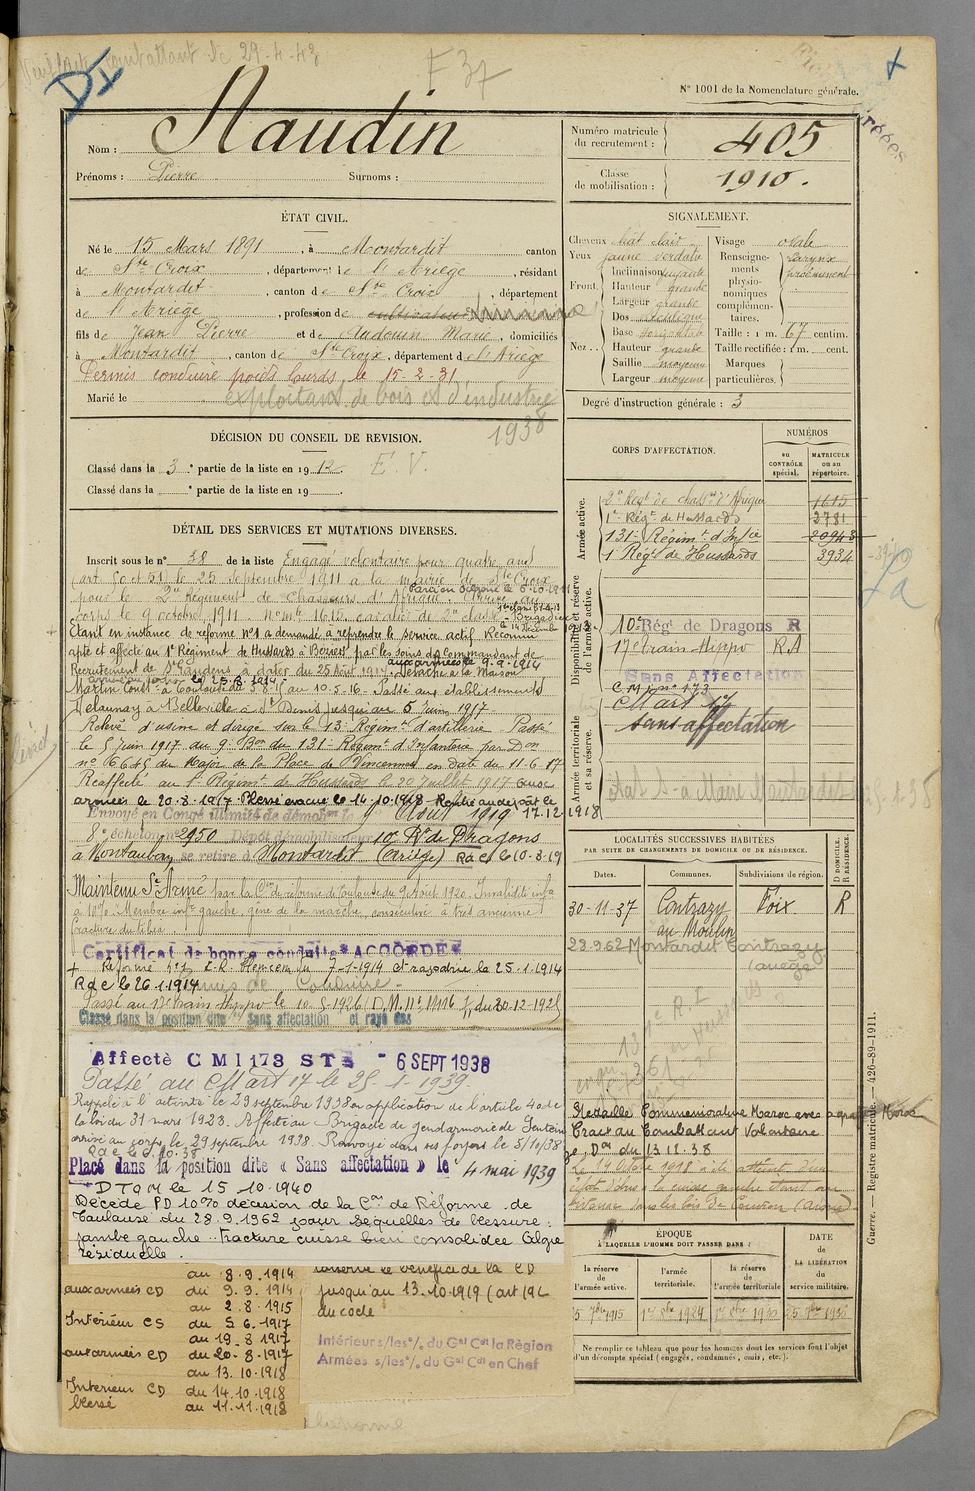 combattant le 29-4-43
F 37
N° 1001 de la Nomenclature générale.
Nom : Naudin
Prénoms : Pierre Surnoms :
Numéro matricule du recrutement : 405
Classe de mobilisation : 1910.
ÉTAT CIVIL.
Né le 15 Mars 1891, à Montardit canton
de Ste Croix, département de l'Ariège, résidant
à Montardit, canton de Ste Croix, département
de l'Ariège, profession de cultivateur
fils de Jean Pierre et de Audouin Marie, domiciliés
à Montardit, canton de Ste Croix, département de l'Ariège
Permis conduire poids lourds le 15-2-31
Marié le exploitant de bois et d'industrie
1938
SIGNALEMENT.
Cheveux chât clair
Yeux jaune verdâtre
Front. Inclinaison fuyante
Hauteur grande
Largeur grande
Nez.. Dos rectiligne
Base horizontale
Hauteur grande
Saillie moyenne
Largeur moyenne
Visage ovale
Renseignements physionomiques complémentaires. Larynx proéminent
Taille : 1 m. 67 centim.
Taille rectifiée : 1 m. cent.
Marques particulières.
Degré d'instruction générale : 3
DÉCISION DU CONSEIL DE REVISION.
Classé dans la 3e partie de la liste en 1912. E. V.
Classé dans la e partie de la liste en 19 .
DÉTAIL DES SERVICES ET MUTATIONS DIVERSES.
Inscrit sous le n° 38 de la liste Engagé volontaire pour quatre ans
(art 50 et 51) le 25 septembre 1911 à la mairie de Ste Croix
pour le 2e Régiment de Chasseurs d'Afrique. Arrivé au
corps le 9 octobre 1911 n° mle 1615 cavalier de 2e classe Brigadier
Etant en instance de réforme n°1 a demandé à reprendre le service actif Reconnu
apte et affecté au 1er Régiment de Hussards à Béziers par les soins du Commandant de
Recrutement de St Gaudens à dater du 25 Août 1914 aux armées le 9.9.1914 Détaché à la Maison
Martin Const. à Toulouse du 3-8-15 au 10-5-16 - Passé aux établissements
Delaunay à Belleville à St Denis jusqu'au 5 Juin 1917 -
Relevé d'usine et dirigé sur le 13e Régimt d'artillerie Passé
le 5 Juin 1917 au 9e Bon du 131e Régimt d'Infanterie par Don
n° 16645 du Major de la Place de Vincennes en date du 11-6-17
Réaffecté au 1er Régimt de Hussards le 20 Juillet 1917 aux
armées le 20-8-1917 Blessé évacué le 14-10-1918 Rentré au dépôt le
17.12.1918
Envoyé en Congé illimité de démobon le 9 Août 1919
8e échelon n° 2950 Dépôt démobilisateur 10e Rt de Dragons
à Montauban se retire à Montardit (Ariège) R d C le 10-8-19
Maintenu Sce Armé par la Con de réforme de Toulouse du 9 Août 1920. Invalidité infre
à 10% Membre infr gauche, gêne de la marche, consécutive à très ancienne
fracture du tibia.
Certificat de bonne conduite "ACCORDÉ"
Réformé n°2 C.R. Tlemcen du 7-1-1914 et rapatrié le 25-1-1914
R d C le 26.1.1914
Passé au 17e train Hippo le 10-5-1926 (D.M. n° 11116 du 30-12-1925
Classé dans la position dite "Sans affectation" et rayé des
Affecté C M I 173 ST - 6 SEPT 1938
Passé au CM art 17 le 25-1-1939.
Rappelé à l'activité le 29 septembre 1938 en application de l'article 40 de
la loi du 31 mars 1928. Affecté au Brigade de gendarmerie de
arrivé au corps le 29 septembre 1938. Renvoyé dans ses foyers le 5/10/38
Placé dans la position dite « Sans affectation » le 4 mai 1939
D T O M le 15 10-1940
Décédé PD 10% décision de la Con de Réforme de
Toulouse du 28.9.1962 pour séquelles de blessure :
jambe gauche - Fracture cuisse bien consolidée Algie
résiduelle
au 8.9.1914
aux armées CD du 9.9.1914
au 2-8-1915
Intérieur CS du 5-6-1917
au 19-8-1917
aux armées CD du 20-8-1917
au 13.10-1918
Intérieur CD du 14-10-1918
blessé au 11.11.1918
conserve le bénéfice de la CD
jusqu'au 13.10-1919 (art 192
du code
Intérieurs s/les% du Gal Cdt la Région
Armées s/les% du Gal Cdt en Chef
CORPS D'AFFECTATION. NUMÉROS
au CONTRÔLE spécial. MATRICULE ou au répertoire.
Armée active.
2e Regt de chassrs d'Afrique 1615
1er Régt de Hussards 2781
131e Régimt d'Infie 20943
1er Régt de Hussards 3934
Disponibilité et réserve de l'armée active.
10e Régt de Dragons R
17e train Hippo R.A
Sans Affectation
C M I n° 173
CM art 17
sans affectation
Armée territoriale et sa réserve.
LOCALITÉS SUCCESSIVES HABITÉES
PAR SUITE DE CHANGEMENTS DE DOMICILE OU DE RÉSIDENCE.
Dates. Communes. Subdivisions de région. D DOMICILE. R RÉSIDENCE.
30-11-37 Contrazy au Moulin Foix. R
28.9.62 Montardit Contrazy
(ariège
Médaille Commémorative Maroc avec agrafe Maroc
Carte du Combattant Volontaire
Don du 13 11.38
Le 14 Octobre 1918 a été atteint d'un
éclat d'obus à la cuisse gauche étant au
ÉPOQUE
À LAQUELLE L'HOMME DOIT PASSER DANS :
DATE de LA LIBÉRATION du service militaire.
la réserve de l'armée active.
l'armée territoriale.
la réserve de l'armée territoriale
Ne remplir ce tableau que pour les hommes dont les services font l'objet
d'un décompte spécial (engagés, condamnés, omis, etc.).
Guerre. — Registre matricule. — 426-89-1911.